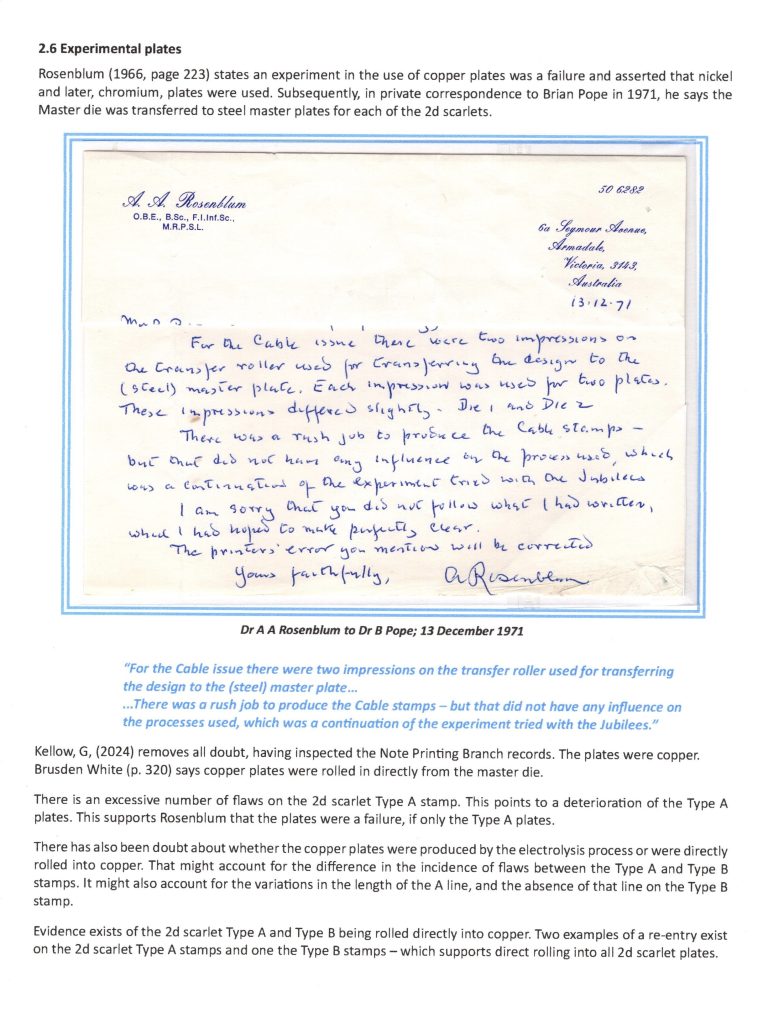 2.6 Experimental plates
Rosenblum (1966, page 223) states an experiment in the use of copper plates was a failure and asserted that nickel
and later, chromium, plates were used. Subsequently, in private correspondence to Brian Pope in 1971, he says the
Master die was transferred to steel master plates for each of the 2d scarlets.
A. A. Rosenblum
O.B.E., B.Sc., F.I.Inf.Sc.,
M.R.P.S.L.
50 6282
6a Seymour Avenue,
Armadale,
Victoria, 3143,
Australia
13.12.71
For the Cable issue there were two impressions on
the transfer roller used for transferring the design to the
(steel) master plate. Each impression was used for two plates.
These impressions differed slightly. Die 1 and Die 2
There was a rush job to produce the Cable stamps –
but that did not have any influence on the process used, which
was a continuation of the experiment tried with the Jubilees
I am sorry that you did not follow what I had written,
what I had hoped to make perfectly clear.
The printers' error you mention will be corrected
Yours faithfully,
A Rosenblum
Dr A A Rosenblum to Dr B Pope; 13 December 1971
"For the Cable issue there were two impressions on the transfer roller used for transferring
the design to the (steel) master plate...
...There was a rush job to produce the Cable stamps – but that did not have any influence on
the processes used, which was a continuation of the experiment tried with the Jubilees."
Kellow, G, (2024) removes all doubt, having inspected the Note Printing Branch records. The plates were copper.
Brusden White (p. 320) says copper plates were rolled in directly from the master die.
There is an excessive number of flaws on the 2d scarlet Type A stamp. This points to a deterioration of the Type A
plates. This supports Rosenblum that the plates were a failure, if only the Type A plates.
There has also been doubt about whether the copper plates were produced by the electrolysis process or were directly
rolled into copper. That might account for the difference in the incidence of flaws between the Type A and Type B
stamps. It might also account for the variations in the length of the A line, and the absence of that line on the Type B
stamp.
Evidence exists of the 2d scarlet Type A and Type B being rolled directly into copper. Two examples of a re-entry exist
on the 2d scarlet Type A stamps and one the Type B stamps – which supports direct rolling into all 2d scarlet plates.